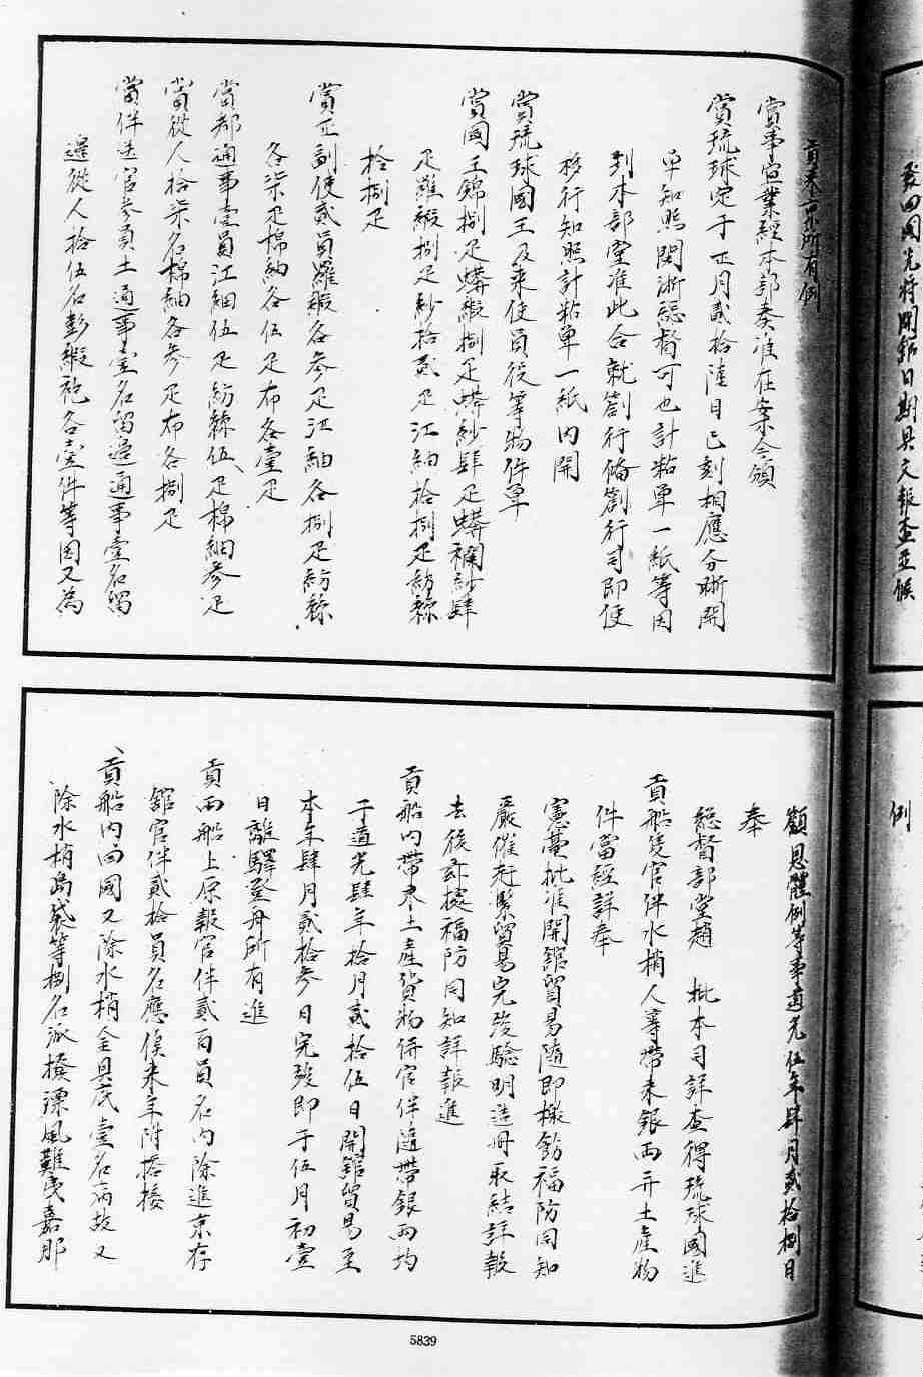 發回國先將開館日期具文報查並候
例
貢來京所有例
賞事宜業經本部奏准在案今頒
賞琉球定于正月貳拾陸日巳刻相應分晰開
單知照閩浙總督可也計粘單一紙等因
到本部堂准此合就劄行備劄行司即便
移行知照計粘單一紙內開
賞琉球國王及來使員役等物件單
賞國王錦捌疋蟒緞捌疋蟒紗肆疋蟒襴紗肆
疋羅緞捌疋紗拾貳疋江紬拾捌疋紡絲
拾捌疋
賞正副使貳員羅緞各參疋江紬各捌疋紡絲
各柒疋棉紬各伍疋布各壹疋
賞都通事壹員江紬伍疋紡絲伍疋棉紬參疋
賞從人拾柒名棉紬各參疋布各捌疋
賞伴送官參員土通事壹名留邊通事壹名留
邊從人拾伍名彭緞袍各壹件等因又為
顧恩體例等事道光伍年肆月貳拾捌日
奉
總督部堂趙 批本司詳查得琉球國進
貢船隻官伴水梢人等帶來銀兩并土產物
件當經詳奉
憲臺批准開館貿易隨即檄飭福防同知
嚴催趕緊貿易完竣驗明造冊取結詳報
去後茲據福防同知詳報進
貢船內帶來土產貨物併官伴隨帶銀兩均
于道光肆年拾月貳拾伍日開館貿易至
本年肆月貳拾參日完竣即于伍月初壹
日離驛登舟所有進
貢兩船上原報官伴貳百員名內除進京存
館官伴貳拾員名應俟來年附搭接
貢船內回國又除水梢金具底壹名病故又
除水梢島袋等捌名派撥漂風難夷嘉那
5839